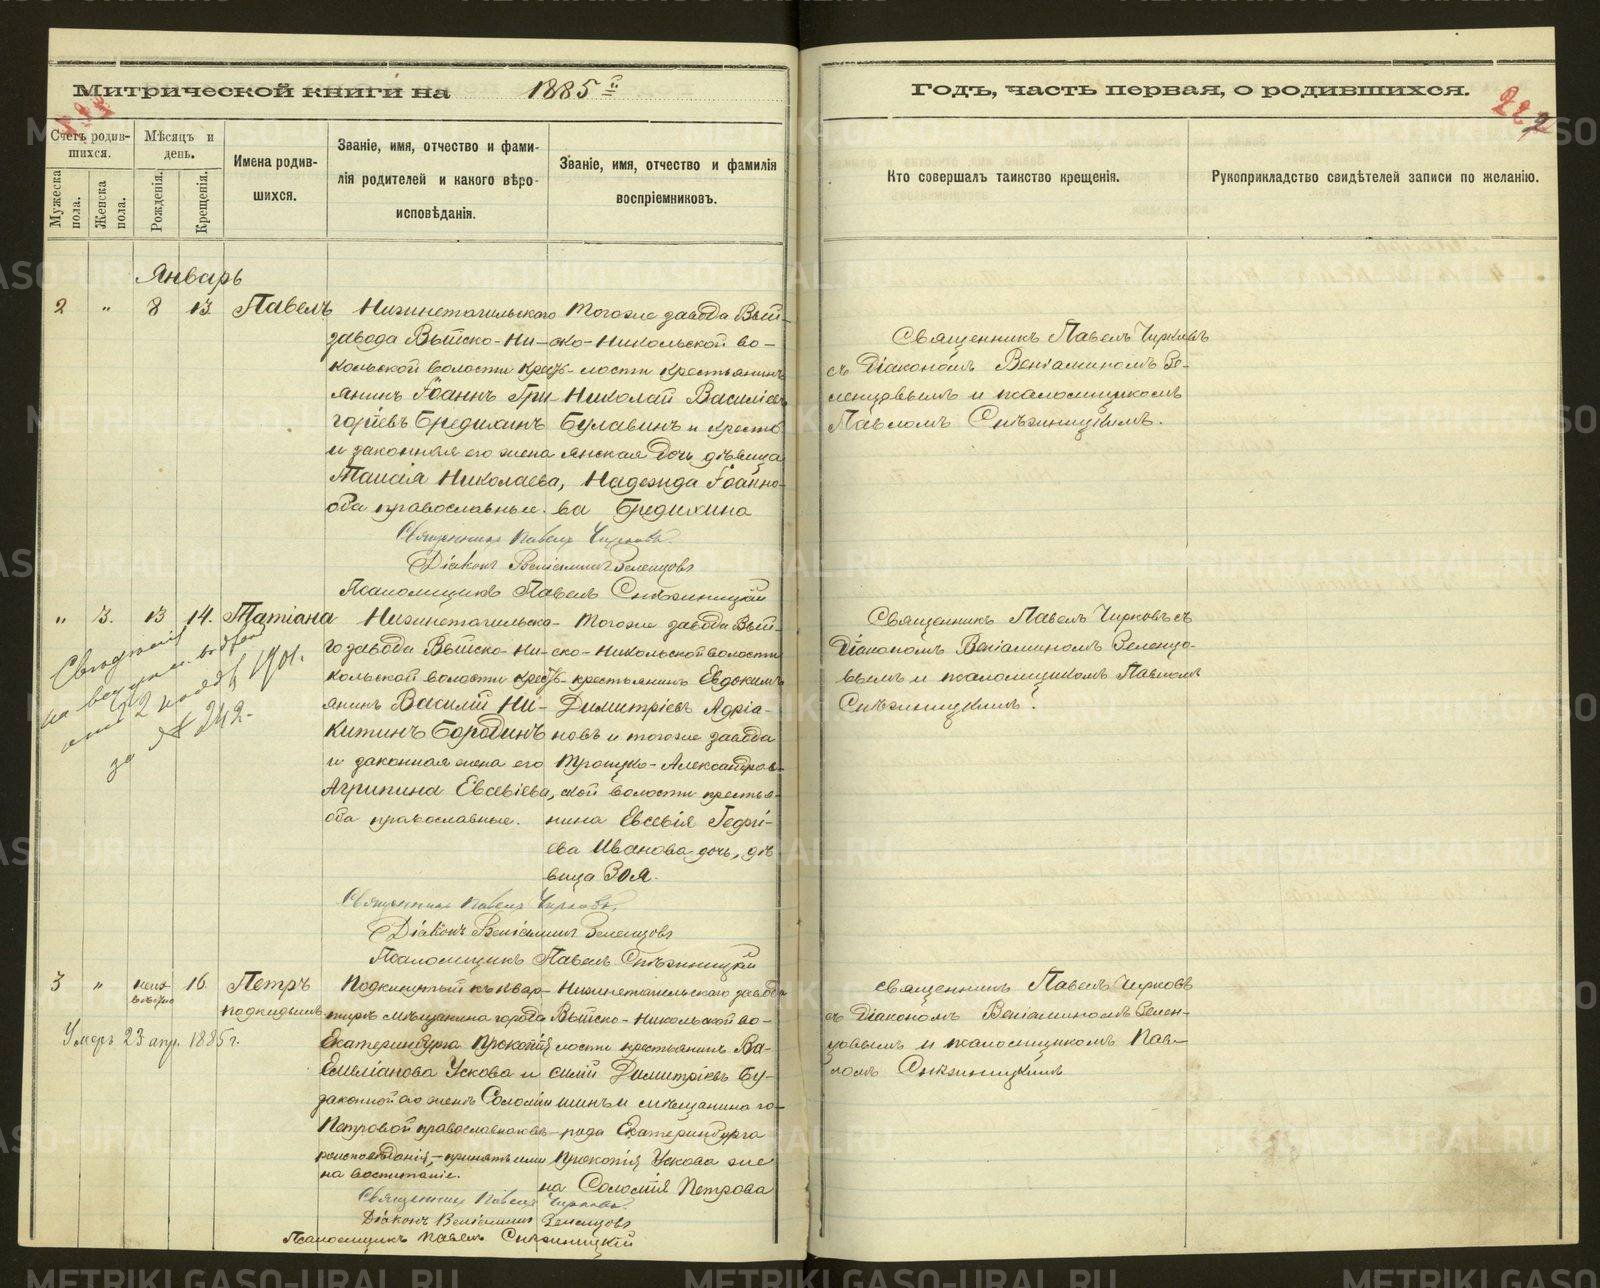 Митрической книги на 1885 й
Годъ, часть первая, о родившихся.
222
Счетъ родив-
шихся.
Мѣсяцъ и
день.
Мужеска
пола.
Женска
пола.
Рожденія.
Крещенія.
Имена родив-
шихся.
Званіе, имя, отчество и фами-
лія родителей и какого вѣро-
исповѣданія.
Званіе, имя, отчество и фамилія
воспріемниковъ.
Кто совершалъ таинство крещенія.
Рукоприкладство свидѣтелей записи по желанію.
Январь
2 " 8 13 Павелъ
Нижнетагильскаго
завода Выйско-Ни-
кольской волости крестъ-
янинъ Іоаннъ Гри-
горіевъ Бредихинъ
и законная его жена
Таисія Николаева,
оба православные.
Тогоже завода Вый-
ско-Никольской во-
лости крестьянинъ
Николай Василіев
Булавинъ и кресть
янская дочь дѣвица
Надежда Іоанно-
ва Бредихина
Священникъ Павелъ Чирковъ
съ Діакономъ Веніаминомъ Зе-
ленцовымъ и псаломщикомъ
Павломъ Снѣжницкимъ.
Священникъ Павелъ Чирковъ.
Діаконъ Веніаминъ Зеленцовъ
Псаломщикъ Павелъ Снѣжницкій
" 3. 13 14. Татіана
Нижнетагильска-
го завода Выйско-Ни-
кольской волости кресть-
янинъ Василій Ни-
китинъ Бородинъ
и законная жена его
Агрипина Евсевіева,
оба православные.
Тогоже завода Вый-
ско-Никольской волости
крестьянинъ Евдокимъ
Димитріевъ Адріа-
новъ и тогоже завода
Троицко-Александров-
ской волости крестья-
нина Евсевія Георгі-
ева Иванова дочь, дѣ
вица Зоя.
Священникъ Павелъ Чирковъ съ
Діакономъ Веніаминомъ Зеленцо-
вымъ и псаломщикомъ Павломъ
Снѣжницкимъ.
отъ 2 1901.
за № 242.
Священникъ Павелъ Чирковъ.
Діаконъ Веніаминъ Зеленцовъ
Псаломщикъ Павелъ Снѣжницкій
3 " неиз-
вѣстно 16 Петръ
подкидышъ
Умеръ 23 апр. 1885 г.
Подкинутый къ квар-
тирѣ мѣщанина города
Екатеринбурга Прокопія
Емеліанова Ускова и
законной его женѣ Соломіи
Петровой православнаго вѣ-
роисповѣданія,-принятъ ими
на воспитаніе.
Нижнетагильскаго завода
Выйско-Никольской во-
лости крестьянинъ Ва-
силій Димитріевъ Бу-
шинъ и мѣщанина го-
рода Екатеринбурга
Прокопія Ускова же
на Соломія Петрова
священникъ Павелъ Чирковъ
съ Діакономъ Веніаминомъ Зелен-
цовымъ и псаломщикомъ Пав-
ломъ Снѣжницкимъ
Священникъ Павелъ Чирковъ.
Діаконъ Веніаминъ Зеленцовъ
Псаломщикъ Павелъ Снѣжницкій
METRIKI.GASO-URAL.RU